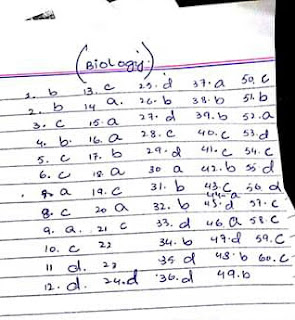 (Biology)
1. b 13. c 25. d 37. a 50. c
2. b 14 a. 26. b 38. b 51. b
3. c 15. a 27. d 39. b 52. a
4. b. 16. a 28. c 40. c 53. d
5. c 17. b 29. d 41. c 54. c
6. c 18. a 30 a 42. b 55 d
7. a 19. c 31. b 43. c 56. d
44. a
8. c 20 a 32. b 45. d 57. c
9. a. 21 c 33. d 46. a 58. c
10. c 22 34. b 47. d 59. c
11 d. 23 35 d 48. b 60. c
12. d. 24. d 36. d 49. b